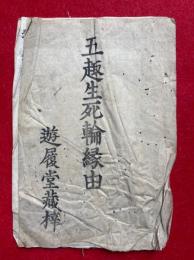 五趣生死輪縁由
遊履堂藏梓